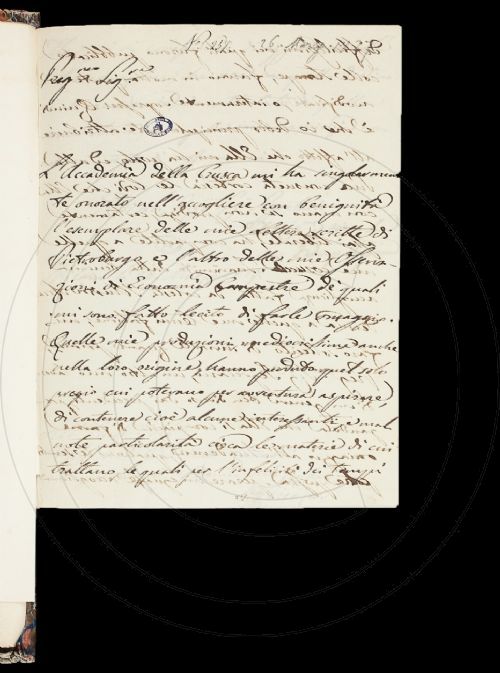 Preg.mo Sig.re
L'Accademia della Crusca mi ha singolarmen
te onorato nell'accogliere con benignità
l'esemplare delle mie lettere scritte di
Pietroburgo e l'altro delle mie Osserva
zioni di Economia Campestre de' quali
mi sono fatto lecito di farle omaggio.
Quelle mie produzioni mediocrissime anche
nella loro origine, hanno perduto quel solo
pregio cui potevano per avventura aspirare,
di contenere cioè alcune interessanti e mal
note particolarità circa le materie di cui
trattano le quali per l'infelicità dei tempi